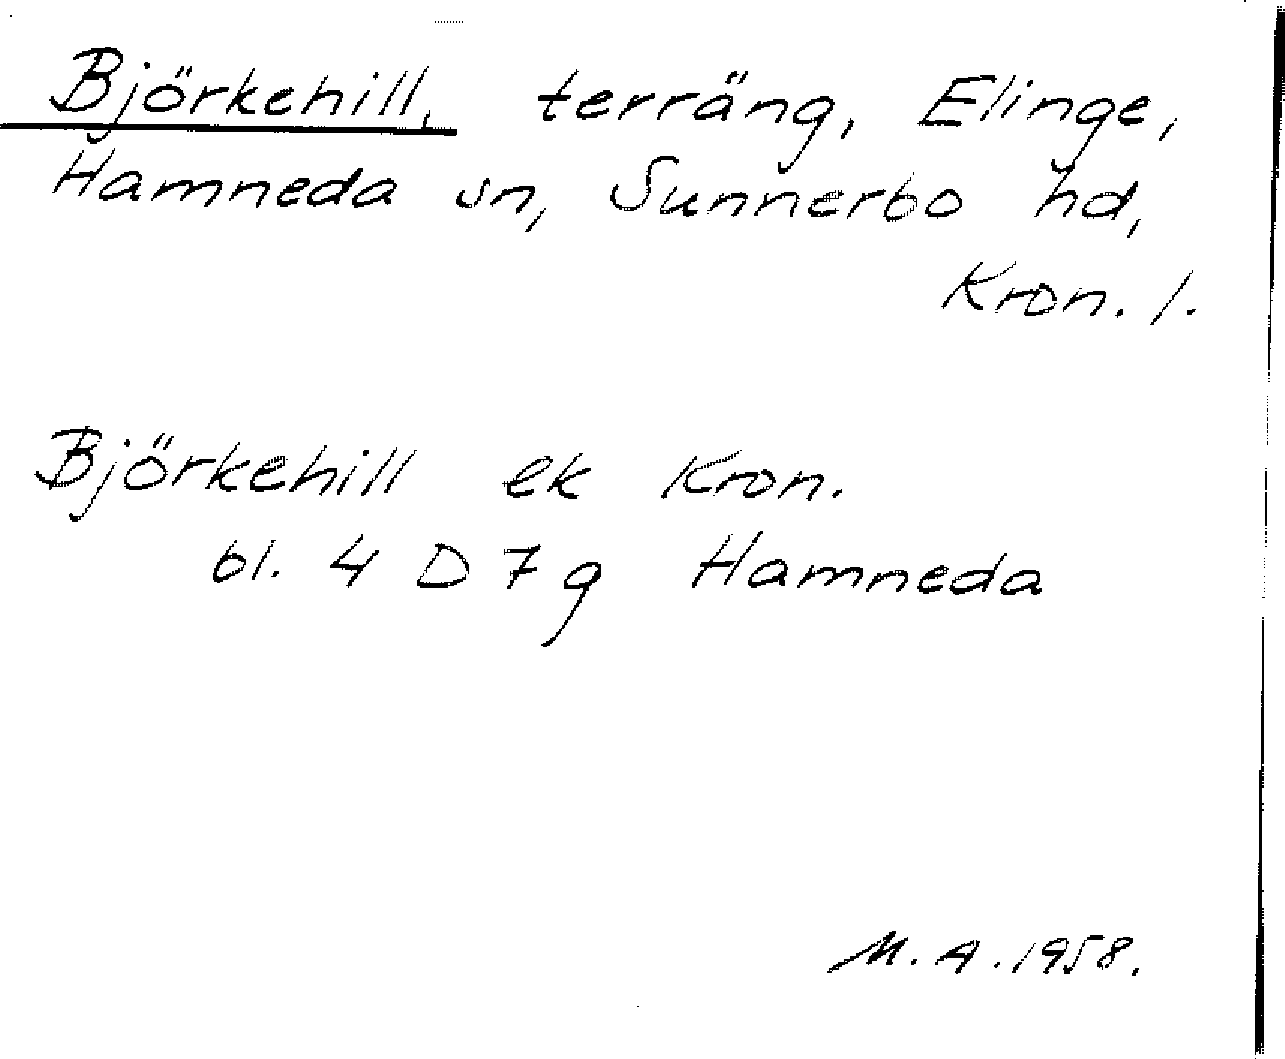 Björkehill, terräng, Elinge,
Hamneda sn, Sunnerbo hd,
Kron. l.
Björkehill ek Kron.
bl. 4 D 7 g Hamneda
M. A. 1958.